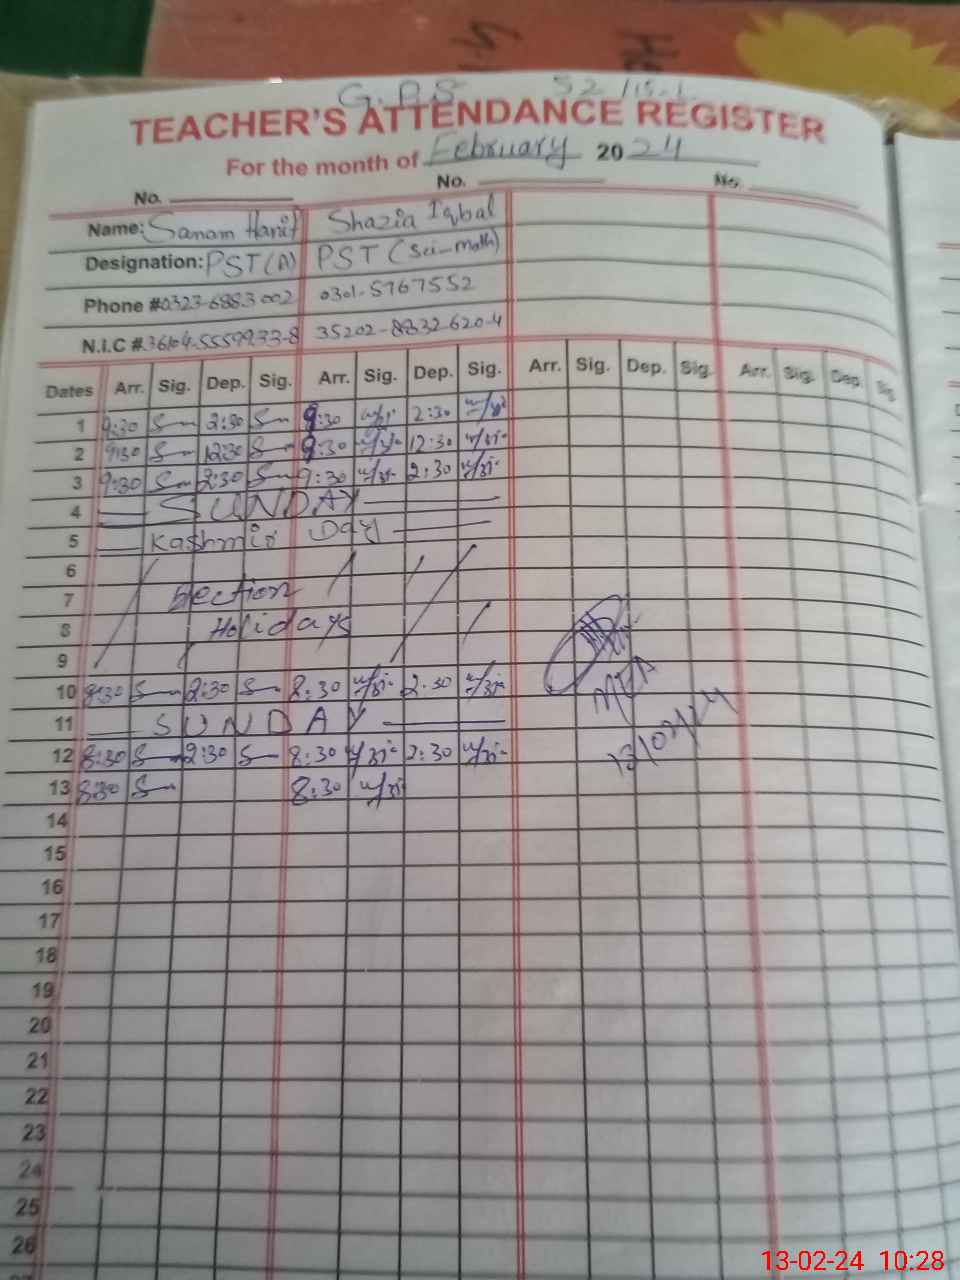 G.P.S 52/15-L
TEACHER'S ATTENDANCE REGISTER
For the month of February 2024
No. No. No.
Name: Sanam Hanif Shazia Iqbal
Designation: PST(A) PST (Sci-math)
Phone # 0323-6883002 0301-5767552
N.I.C #. 36104-5559933-8 35202-8832620-4
Dates Arr. Sig. Dep. Sig. Arr. Sig. Dep. Sig. Arr. Sig. Dep. Sig. Arr. Sig. Dep. Sig.
1 9:30 2:30 9:30 2:30
2 9:30 12:30 9:30 12:30
3 9:30 2:30 9:30 2:30
4 SUNDAY
5 Kashmir Day
6
7 Election
8 Holidays
9
10 8:30 2:30 8:30 2:30
11 SUNDAY
12 8:30 2:30 8:30 2:30
13 8:30 8:30
MEA
13/02/24
14
15
16
17
18
19
20
21
22
23
24
25
26
13-02-24 10:28